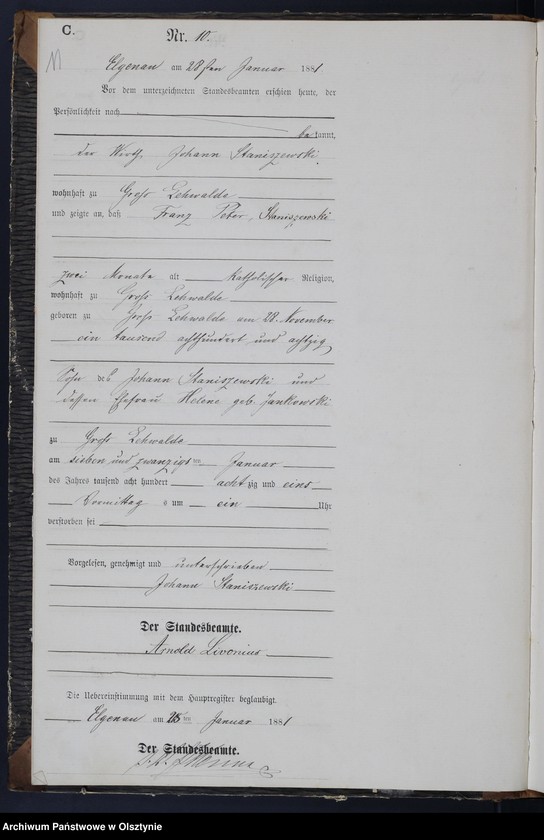 C.
Nr. 10.
11
Elgenau am 28sten Januar 1881
Vor dem unterzeichneten Standesbeamten erschien heute, der
Persönlichkeit nach
bekannt,
der Wirth Johann Staniszewski,
wohnhaft zu Gross Lehwalde
und zeigte an, daß Franz Peter Staniszewski
zwei Monate alt katholischer Religion,
wohnhaft zu Gross Lehwalde
geboren zu Gross Lehwalde am 28. November
ein tausend achthundert und achtzig,
Sohn des Johann Staniszewski und
dessen Ehefrau Helene geb. Jankowski
zu Gross Lehwalde
am sieben und zwanzigsten Januar
des Jahres tausend acht hundert achtzig und eins
Vormittags um ein Uhr
verstorben sei
Vorgelesen, genehmigt und unterschrieben
Johann Staniszewski
Der Standesbeamte.
Arnold Livonius
Die Uebereinstimmung mit dem Hauptregister beglaubigt.
Elgenau am 28ten Januar 1881
Der Standesbeamte.
Archiwum Państwowe w Olsztynie